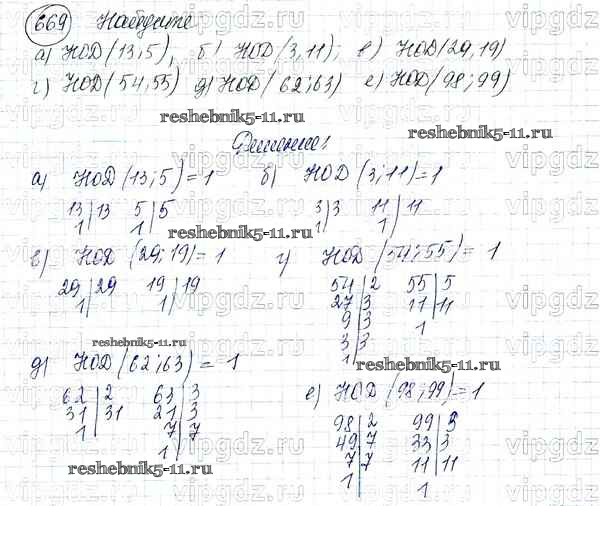 669 Найдите
а) НОД(13;5), б) НОД(3,11); в) НОД(29,19)
г) НОД(54,55) д) НОД(62;63) е) НОД(98;99)
reshebnik5-11.ru
reshebnik5-11.ru
Решение:
а) НОД(13;5)=1 б) НОД(3;11)=1
13|13 5|5 3|3 11|11
1| 1| 1| 1|
reshebnik5-11.ru
в) НОД(29;19)=1 г) НОД(54;55)=1
29|29 19|19 54|2 55|5
1| 1| 27|3 11|11
9|3 1
3|3
1|
reshebnik5-11.ru
reshebnik5-11.ru
д) НОД(62;63)=1 е) НОД(98;99)=1
62|2 63|3 98|2 99|3
31|31 21|3 49|7 33|3
1| 7|7 7|7 11|11
1| 1| 1
reshebnik5-11.ru
vipgdz.ru